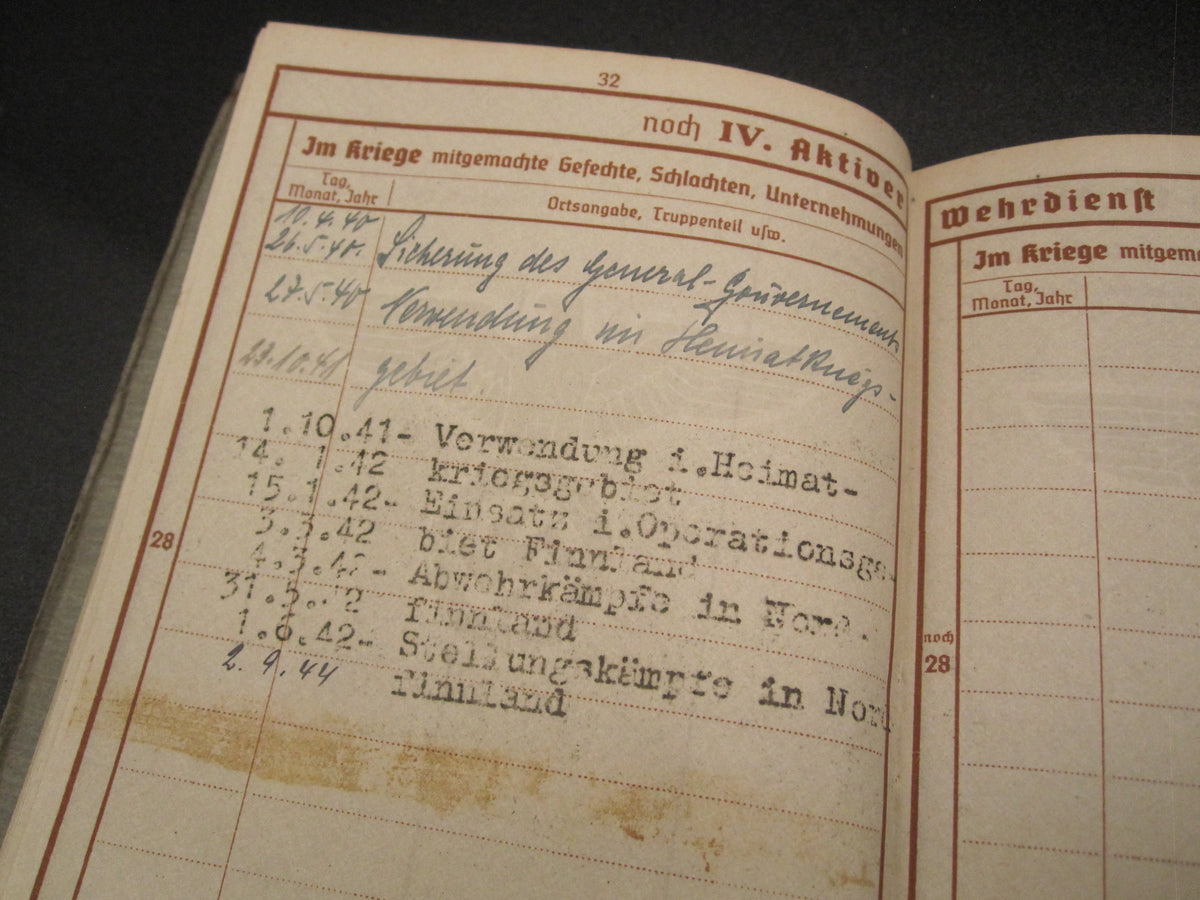 32
noch IV. Aktiver
Im Kriege mitgemachte Gefechte, Schlachten, Unternehmungen
Tag, Monat, Jahr
Ortsangabe, Truppenteil usw.
10.4.40
26.5.40. Sicherung des General-Gouvernements
27.5.40 Verwendung im Heimatkriegs-
gebiet.
1.10.41- Verwendung i.Heimat-
14. 1.42 kriegsgebiet
15.1.42- Einsatz i.Operationsge-
3.3.42 biet Finnland
4.3.42- Abwehrkämpfe in Nord-
31.5.42 finnland
1.6.42- Stellungskämpfe in Nord
2.9.44 finnland
28
Wehrdienst
Im Kriege mitgema
Tag, Monat, Jahr
noch
28